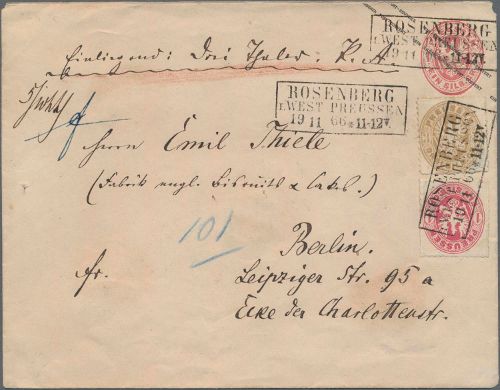 ROSENBERG
I. WEST PREUSSEN
19 11 66 * 11-12 V.
EIN SILBER
Einliegend: Drei Thaler. K. A.
ROSENBERG
I. WEST PREUSSEN
19 11 66 * 11-12 V.
ROSENBERG
I. WEST PREUSSEN
19 11 66 * 11-12 V.
PREUSSEN
Herrn Emil Thiele
(Fabrik engl. Biscuits & Cakes.)
101
Berlin.
fr. Leipziger Str. 95 a
Ecke der Charlottenstr.